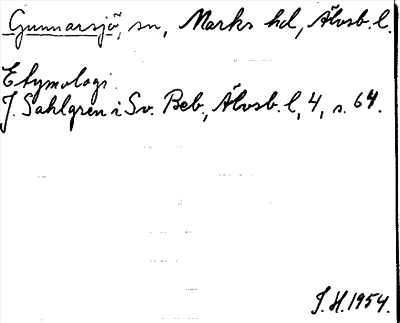 Gunnarsjö, sn, Marks hd, Älvsb. l.
Etymologi.
J. Sahlgren i Sv. Beb., Älvsb. l, 4, s. 64.
I. H. 1954.